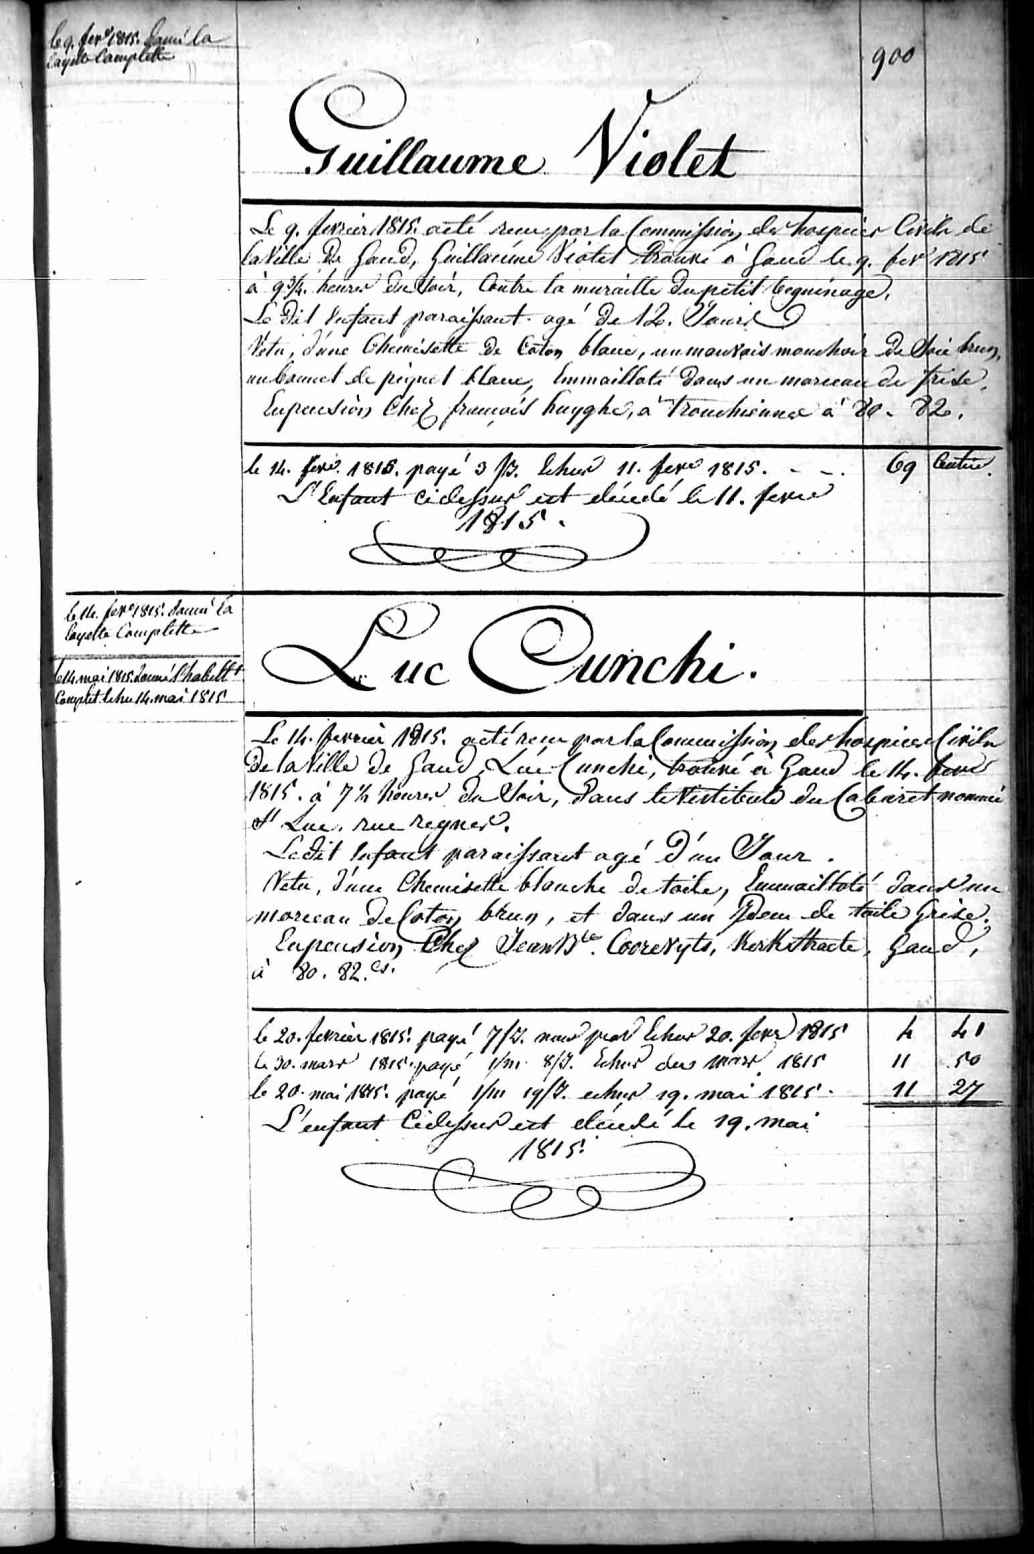 900
le 9. fevr 1815. donné la
layette Complette
Guillaume Violet
Le 9. fevrier 1815. a été reçu par la Commission des hospices Civils de
la Ville de Gand, Guillaume Violet trouvé à Gand le 9. fevr 1815
à 9 3/4. heures du Soir, Contre la muraille du petit beguinage,
Le dit Enfant paraissant agé de 12. Jours
Vetu, d'une Chemisette de Coton blanc, un mauvais mouchoir de Soie brun,
un bonnet de piquet blanc, Emmailloté dans un morceau de frise,
En pension Chez françois huyghe, à Tronchienne à 80. 82.
le 14. fevr. 1815. payé 3/J. Echus 11. fevr 1815. - - . 69 Centim.
L'Enfant cidessus est décédé le 11. fevrie
1815.
le 14. fevr 1815. donné la
layette Complette
le 14. mai 1815. donné l'habillt
Complet Echu 14. mai 1815
Luc Cunchi.
Le 14. fevrier 1815. a été reçu par la Commission des hospices Civils
de la Ville de Gand, Luc Cunchi, trouvé à Gand le 14. fevr
1815. à 7 1/2 heures du Soir, dans le Vestibule du Cabaret nommé
St Luc. rue regnes.
Le dit Enfant paraissant agé d'un Jour.
Vetu, d'une Chemisette blanche de toile, Emmailloté dans un
morceau de Coton brun, et dans un Idem de toile Grise.
En pension Chez Jean Bte. Coorevyts, Kerkstraete, Gand,
à 80. 82.cs.
le 20. fevrier 1815. payé 7/J. Echus 20. fevr 1815 4 41
le 30. mars 1815. payé 1/m 8/J. Echus des mars 1815 11 50
le 20. mai 1815. payé 1/m 19/J. echus 19. mai 1815. 11 27
L'enfant Cidessus est décédé le 19. mai
1815.